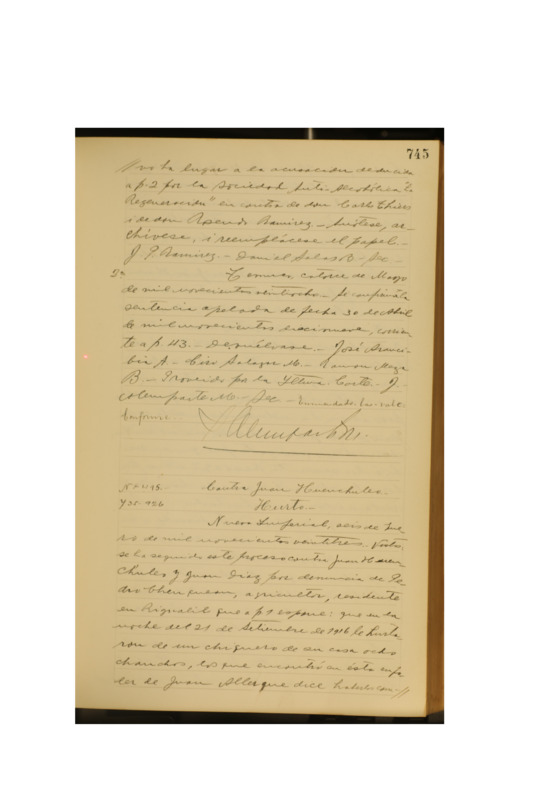 745
lugar a la acusación deducida
a f. 2 por la Sociedad Anti-alcohólica "La
Regeneración" en contra de don Carlos Thiers
i de don Rosendo Ramirez.- Anótese, ar-
chívese, i reemplácese el papel.-
J. P. Ramirez.- Daniel Salas R.- Sec.-
2ª
Temuco, catorce de Mayo
de mil novecientos veintiocho.- Se confirma la
sentencia apelada de fecha 30 de Abril
de mil novecientos, corrien-
te a f. 43.- Devuélvase.- José
A.- Ciro Salazar M.- Ramon Meza
B.- Proveido por la Iltma. Corte.- J.
Alemparte M.- Sec.- Enmendado: vale.
Conforme.
J. Alemparte M.
Contra Juan Huenchuleo.
Hurto.-
Nueva Imperial, seis de Ene-
ro de mil novecientos veintitres. Vistos,
se ha seguido este proceso contra Juan Huen-
chuleo y Juan Diaz por denuncia de Pe-
dro, agricultor, residente
en que a f. 1 espone: que en la
noche del 21 de Setiembre de 1916 le hurta
ron de un chiquero de su casa ocho
chanchos, los que encontró en ésta en po
der de Juan que dice haberlos com-//